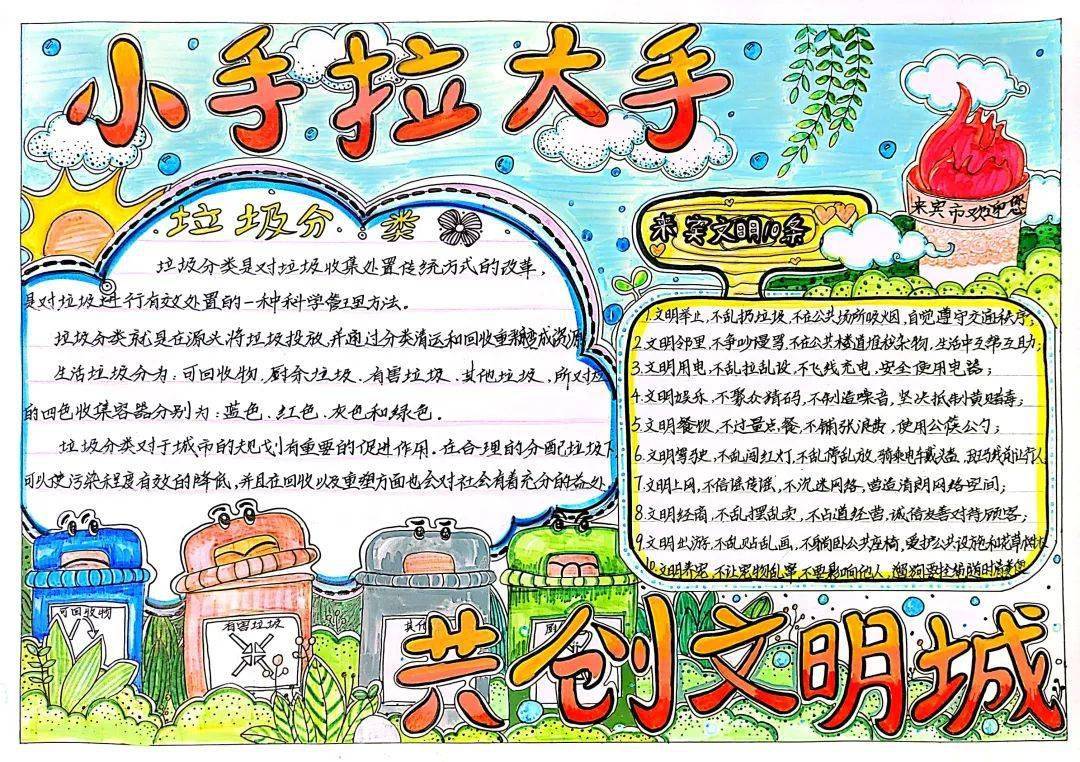 小手拉大手
垃圾分类
垃圾分类是对垃圾收集处置传统方式的改革，
是对垃圾进行有效处置的一种科学管理方法。
垃圾分类就是在源头将垃圾投放，并通过分类清运和回收重新变成资源
生活垃圾分为：可回收物、厨余垃圾、有害垃圾、其他垃圾，所对应
的四色收集容器分别为：蓝色、红色、灰色和绿色。
垃圾分类对于城市的规划有重要的促进作用。在合理的分配垃圾下
可以使污染程度有效的降低，并且在回收以及重塑方面也会对社会有着充分的益处
来宾市欢迎您
来宾文明10条
1.文明举止，不乱扔垃圾，不在公共场所吸烟，自觉遵守交通秩序；
2.文明邻里，不争吵谩骂，不在公共楼道堆放杂物，生活中互帮互助；
3.文明用电，不乱拉乱设，不飞线充电，安全使用电器；
4.文明娱乐，不聚众精码，不制造噪音，坚决抵制黄赌毒；
5.文明餐饮，不过量点餐，不铺张浪费，使用公筷公勺；
6.文明驾驶，不乱闯红灯，不乱停乱放，骑乘电车戴头盔，斑马线前让行人
7.文明上网，不信谣传谣，不沉迷网络，营造清朗网络空间；
8.文明经商，不乱摆乱卖，不占道经营，诚信友善对待顾客；
9.文明出游，不乱贴乱画，不躺卧公共座椅，爱护公共设施和花草树木
10.文明养宠，不让宠物乱窜，不要影响他人，遛狗要全绳随时清粪便
可回收物
有害垃圾
其他
厨
共创文明城